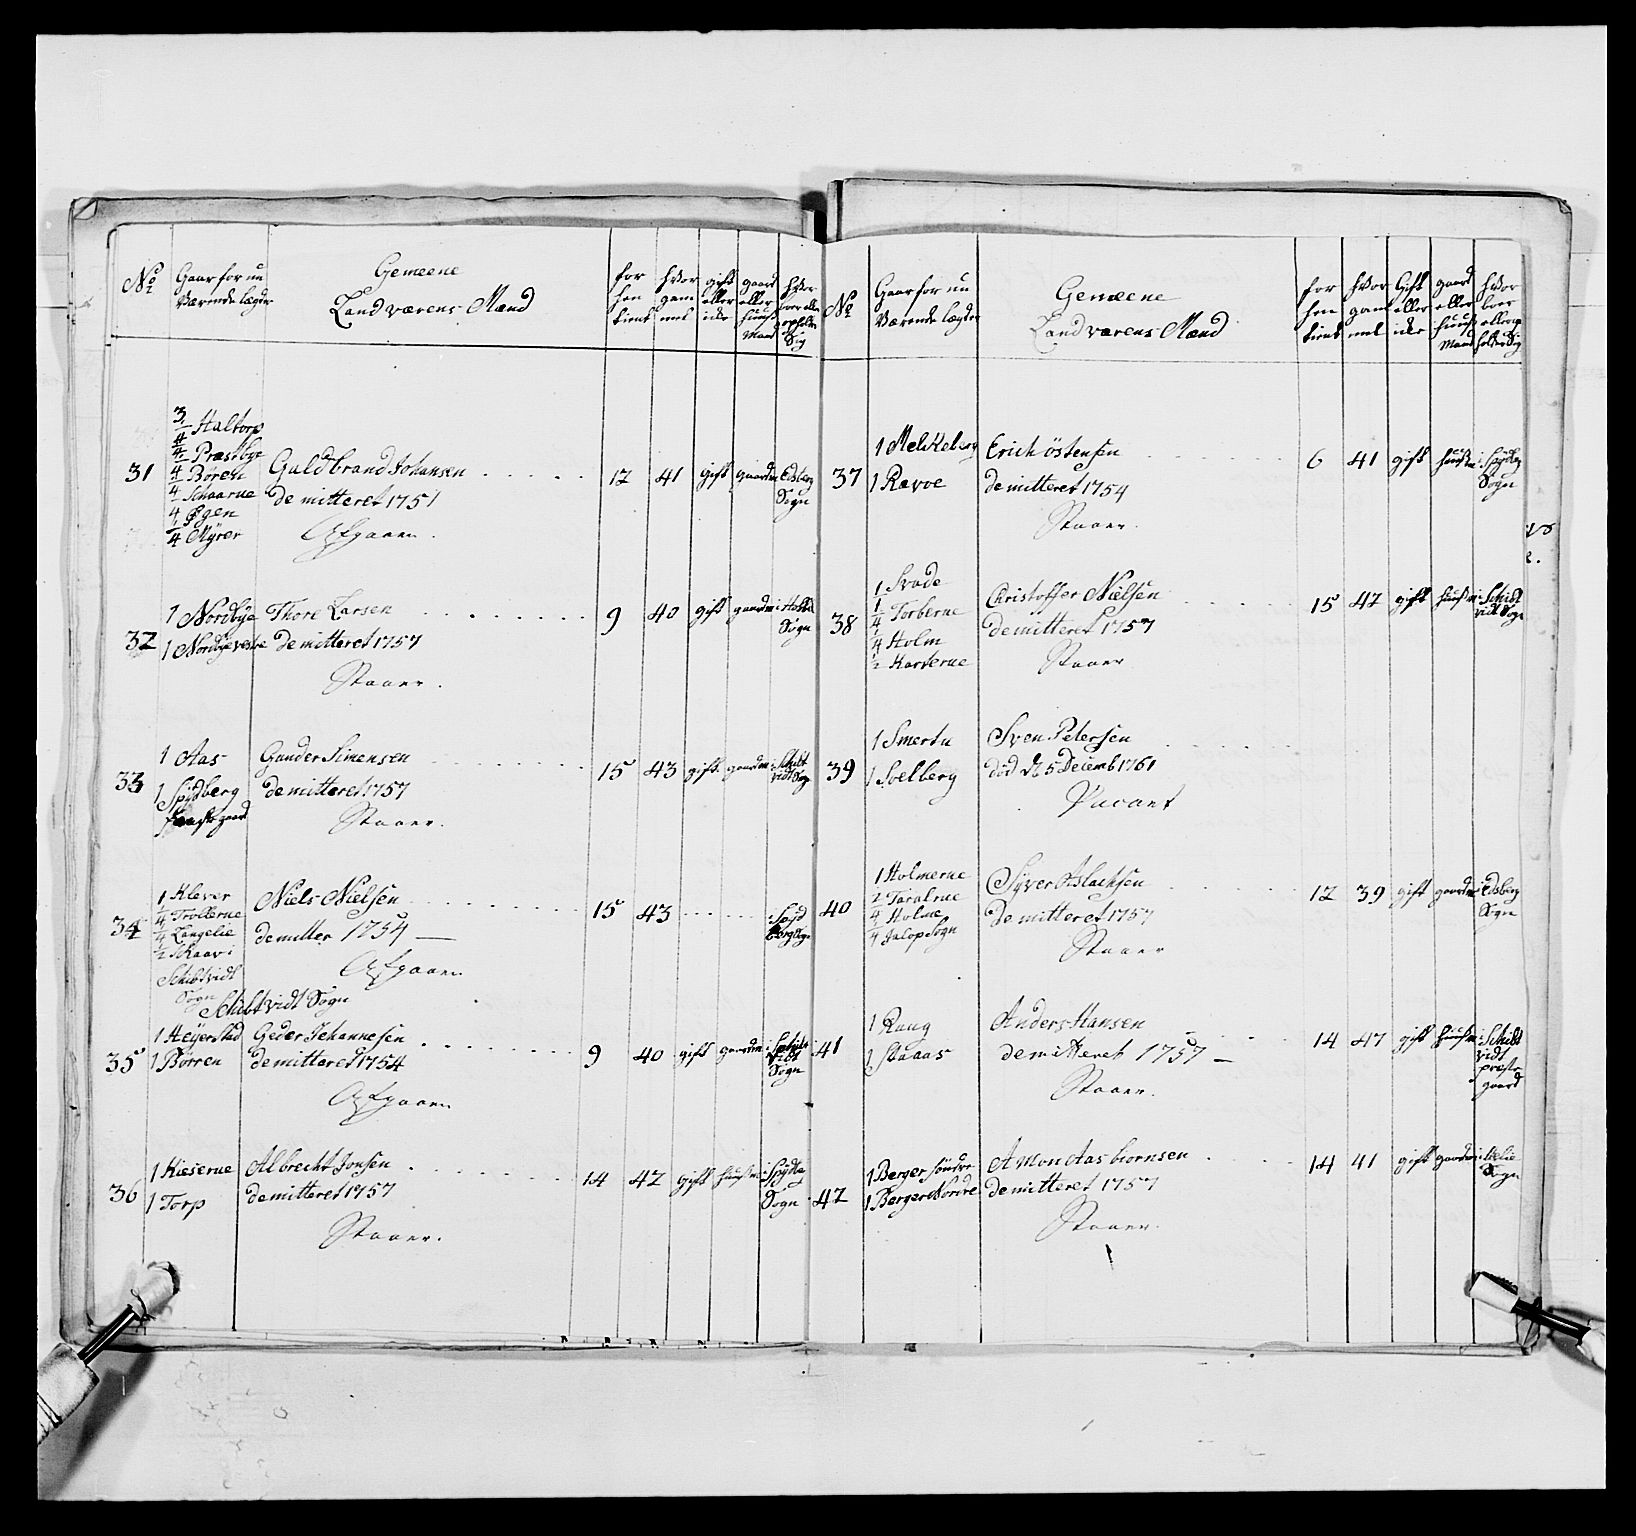 No
Gaar for nu
Værende lægder
Gemeene
Landværens Mænd
for
hen
tient
hvor
gam
mel
gift
eller
ikke
gaard
eller
huus
Mand
hvor
boer eller
opholder
Sig
31
3/4 Haltorp
1/4 Præstbye
1/4 Børen
1/4 Skaarue
1/4 Øgen
1/4 Myrer
Guldbrand Johansen
demitteret 1751
Afgaaen.
12 41 gift gaardm Edsberg
Sogn
32
1 Nordbye
1 Nordbye vestre
Thore Larsen
demitteret 1757
Staaer.
9 40 gift gaardm i
Sogn
33
1 Aas
1 Spydberg
Gunder Simensen
demitteret 1757
Staaer.
15 43 gift gaardm i Schibt
vidt Sogn
34
1 Klever
1/4 Trollerue
1/4 Langelie
1/2 Skaar i
Schibtvidt
Sogn
Niels Nielsen
demitter 1754
Afgaaen
15 43
Spyd
berg Sogn
Schibtvidt Sogn
35
1 Heyerstad
1 Børren
Geder Johannesen
demitteret 1754
Afgaaen
9 40 gift gaardm i
vidt
Sogn
36
1 Kieserue
1 Torp
Albrecht Jonsen
demitteret 1757
Staaer.
14 42 gift huusm i Spydbg
Sogn
No
Gaar for nu
Værende lægder
Gemeene
Landværens Mænd
for
hen
tient
hvor
gam
mel
Gift
eller
ikke
gaard
eller
huus
Mand
hvor
boer
eller op
holder Sig
37
1 Melkeberg
1 Ravoe
Erich Østensen
demitteret 1754
Staaer.
6 41 gift huusm i Spydberg
Sogn
38
1 Svade
1/4 Torberue
1/4 Holm
1/2 Karterue
Christoffer Nielsen
demitteret 1757
Staaer
15 42 gift huusm i Schibt
vidt Sogn
39
1 Smertu
1 Soelberg
Sven Petersen
död d. 5 Decemb 1761
Vacant
40
1 Holmerue
1/2 Taralrue
1/4 Holme
1/4 Jalop Sogn
Syver Aslachsen
demitteret 1757
Staaer
12 39 gift gaardm i Edsberg
Sogn
41
1 Raug
1 Staaas
Anders Hansen
demitteret 1757
Staaer.
14 47 gift huusm i Schibt
vidt
præste
gaard
42
1 Berger søndre
1 Berger Nordre
Amon Aasbiornsen
demitteret 1757
Staaer.
14 41 gift gaardm i
Sogn